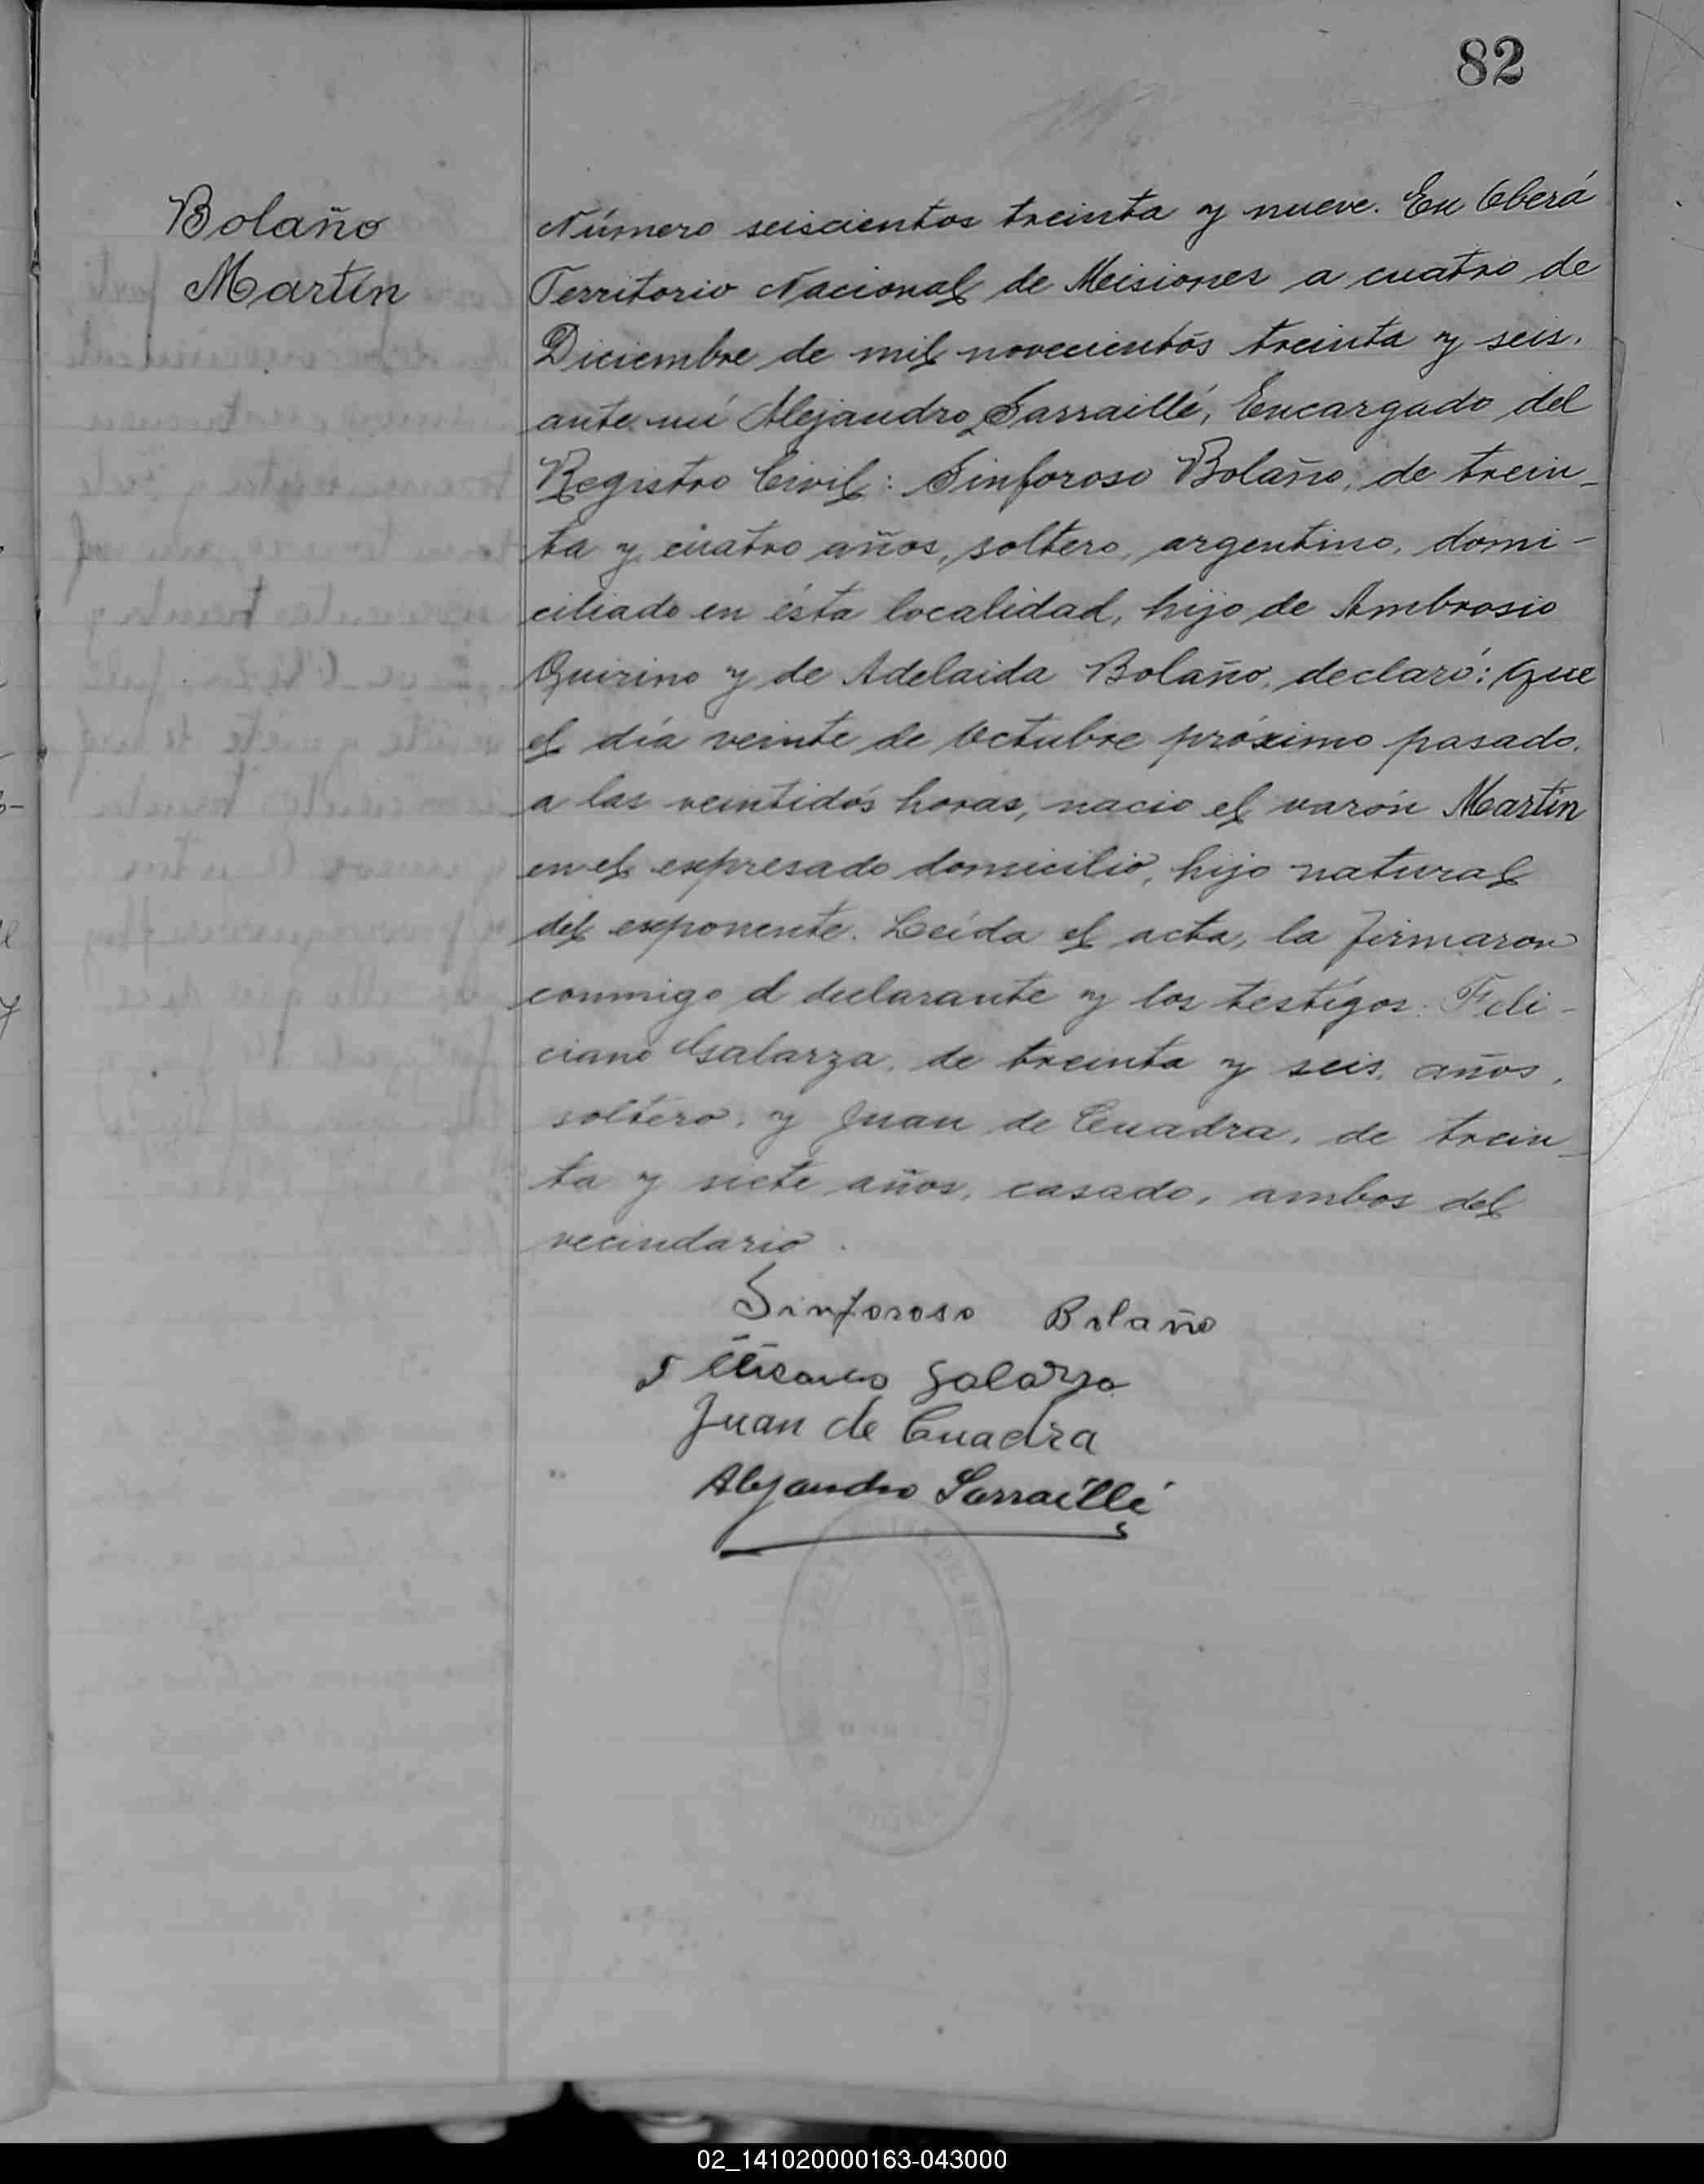 82
Bolaño
Martín
Número seiscientos treinta y nueve. En Oberá
Territorio Nacional de Misiones a cuatro de
Diciembre de mil novecientos treinta y seis.
ante mí Alejandro Sarraillé, Encargado del
Registro Civil: Sinforoso Bolaño, de trein-
ta y cuatro años, soltero, argentino, domi-
ciliado en ésta localidad, hijo de Ambrosio
Quirino y de Adelaida Bolaño, declaró: Que
el día veinte de Octubre próximo pasado,
a las veintidós horas, nació el varón Martín
en el expresado domicilio, hijo natural
del exponente. Leída el acta, la firmaron
conmigo el declarante y los testigos: Feli-
ciano Galarza, de treinta y seis años,
soltero, y Juan de Cuadra, de trein-
ta y siete años, casado, ambos del
vecindario.
Sinforoso Bolaño
Galarza
Juan de Cuadra
Alejandro Sarraillé
02_141020000163-043000